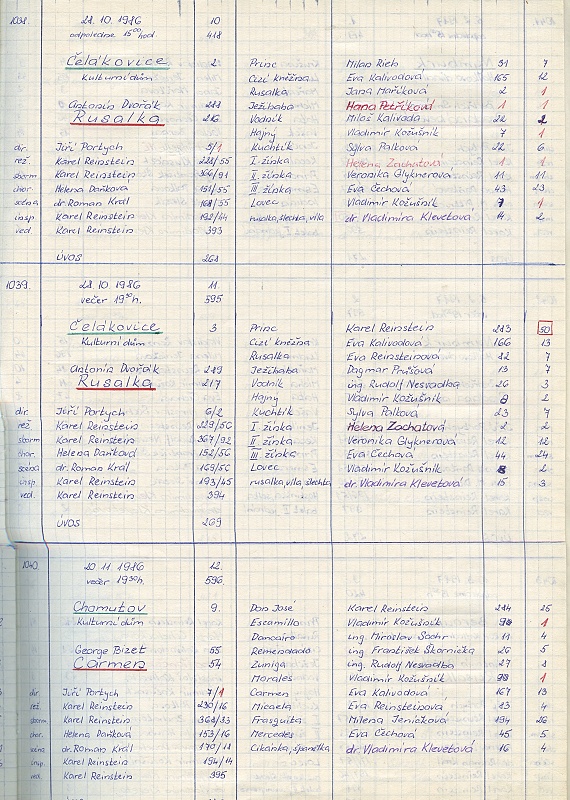 1038. 28. 10. 1986 10
odpoledne 15⁰⁰ hod. 418
Čelákovice 2. Princ Milan Rieh 31 7
Kulturní dům Cizí kněžna Eva Kalivodová 165 12
Rusalka Jana Maříková 2 1
Antonín Dvořák Ježibaba Hana Petříková 1 1
Rusalka 216 Vodník Miloš Kalivoda 22 2
Hajný Vladimír Kožušník 7 1
dir. Jiří Partych 5/1 Kuchtík Sylva Palková 22 6
rež. Karel Reinstein 228/55 I. žínka Helena Zachatová 1 1
sborm. Karel Reinstein 366/91 II. žínka Veronika Glyknerová 11 11
chor. Helena Daňková 151/55 III. žínka Eva Čechová 43 23
scéna dr. Roman Král 168/55 Lovec Vladimír Kožušník 7 1
insp. Karel Reinstein 192/44 rusalka, šlechta, víla dr. Vladimíra Klevetová 14 2
ved. Karel Reinstein 393
ÚVOS 268
1039. 28. 10. 1986 11.
večer 19³⁰ h. 595
Čelákovice 3 Princ Karel Reinstein 213 50
Kulturní dům Cizí kněžna Eva Kalivodová 166 13
Rusalka Eva Reinsteinová 12 7
Antonín Dvořák 219 Ježibaba Dagmar Průšová 13 7
Rusalka 217 Vodník ing. Rudolf Nesvadba 26 3
Hajný Vladimír Kožušník 8 2
dir. Jiří Partych 6/2 Kuchtík Sylva Palková 23 7
rež. Karel Reinstein 229/56 I žínka Helena Zachatová 2 2
sborm. Karel Reinstein 367/92 II žínka Veronika Glyknerová 12 12
chor. Helena Daňková 152/56 III žínka Eva Čechová 44 24
scéna dr. Roman Král 169/56 Lovec Vladimír Kožušník 8 2
insp. Karel Reinstein 193/45 rusalka, víla, šlechta dr. Vladimíra Klevetová 15 3
ved. Karel Reinstein 394
ÚVOS 269
1040. 20. 11. 1986 12.
večer 19³⁰ h. 596.
Chomutov 9. Don José Karel Reinstein 214 25
Kulturní dům Escamillo Vladimír Kožušník 1
Dancairo ing. Miroslav Sochr 11 4
George Bizet 55 Remendado ing. František Škornička 26 5
Carmen 54 Zuniga ing. Rudolf Nesvadba 27 8
Morales Vladimír Kožušník 1
dir. Jiří Partych 7/1 Carmen Eva Kalivodová 167 13
rež. Karel Reinstein 230/16 Micaela Eva Reinsteinová 13 4
sborm. Karel Reinstein 368/33 Frasquita Milena Jeníčková 194 26
chor. Helena Daňková 153/16 Mercedes Eva Čechová 45 5
scéna dr. Roman Král 170/11 Cikánka, španělka dr. Vladimíra Klevetová 16 4
insp. Karel Reinstein 194/14
ved. Karel Reinstein 395